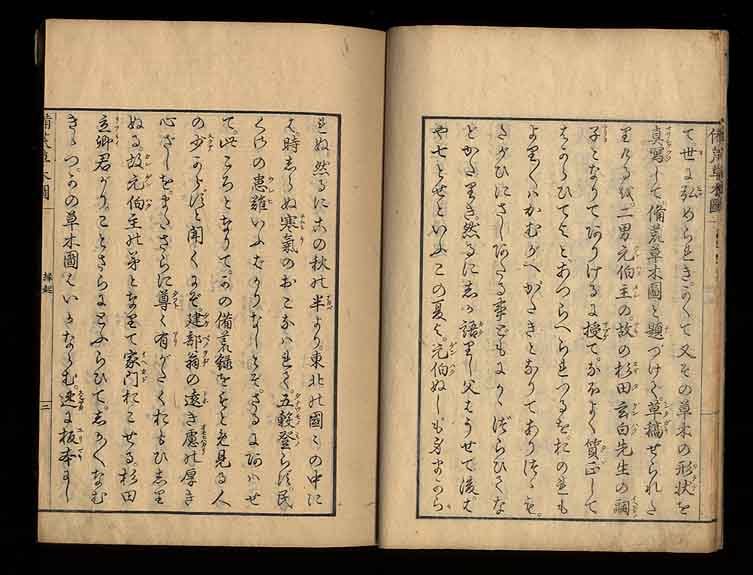 備荒草木圖
て世に弘められきかくて又その草木の形状を
真寫して備荒草木圖と題づけて。草稿せられた
りける越。二男元伯主の。故の杉田玄白先生の嗣
子となりてありけるに授てなほよく質正して
とあつらへられつるを。おのれも
がたきとなりてありつるを。
たがひにさしあたる事どもにかゝづらひてな
とかたりき。然るに 語りし父はうせて後は
や七とせといふこの夏は。元伯ぬしも身まから
れぬ。然るにこの秋の半より。東北の國々の中に
は。時しらぬ寒氣のおこなはれて。五穀登らず。民
くさの患難いふばかりなしとぞ
て。此ころとなりて。かの備荒録をもとめ見る人
の少からずと聞くにぞ建部翁の遠き慮の厚き
心ざしを。またさらに尊く有がたくおもひしり
ぬる。故元伯主の弟となりて家門おこせる。杉田
立卿君がり。ことさらにとふらひて。しかくなむ
きゝつ。かの草木圖はいかならむ。速に板本にし
備荒草木圖
縁起
二